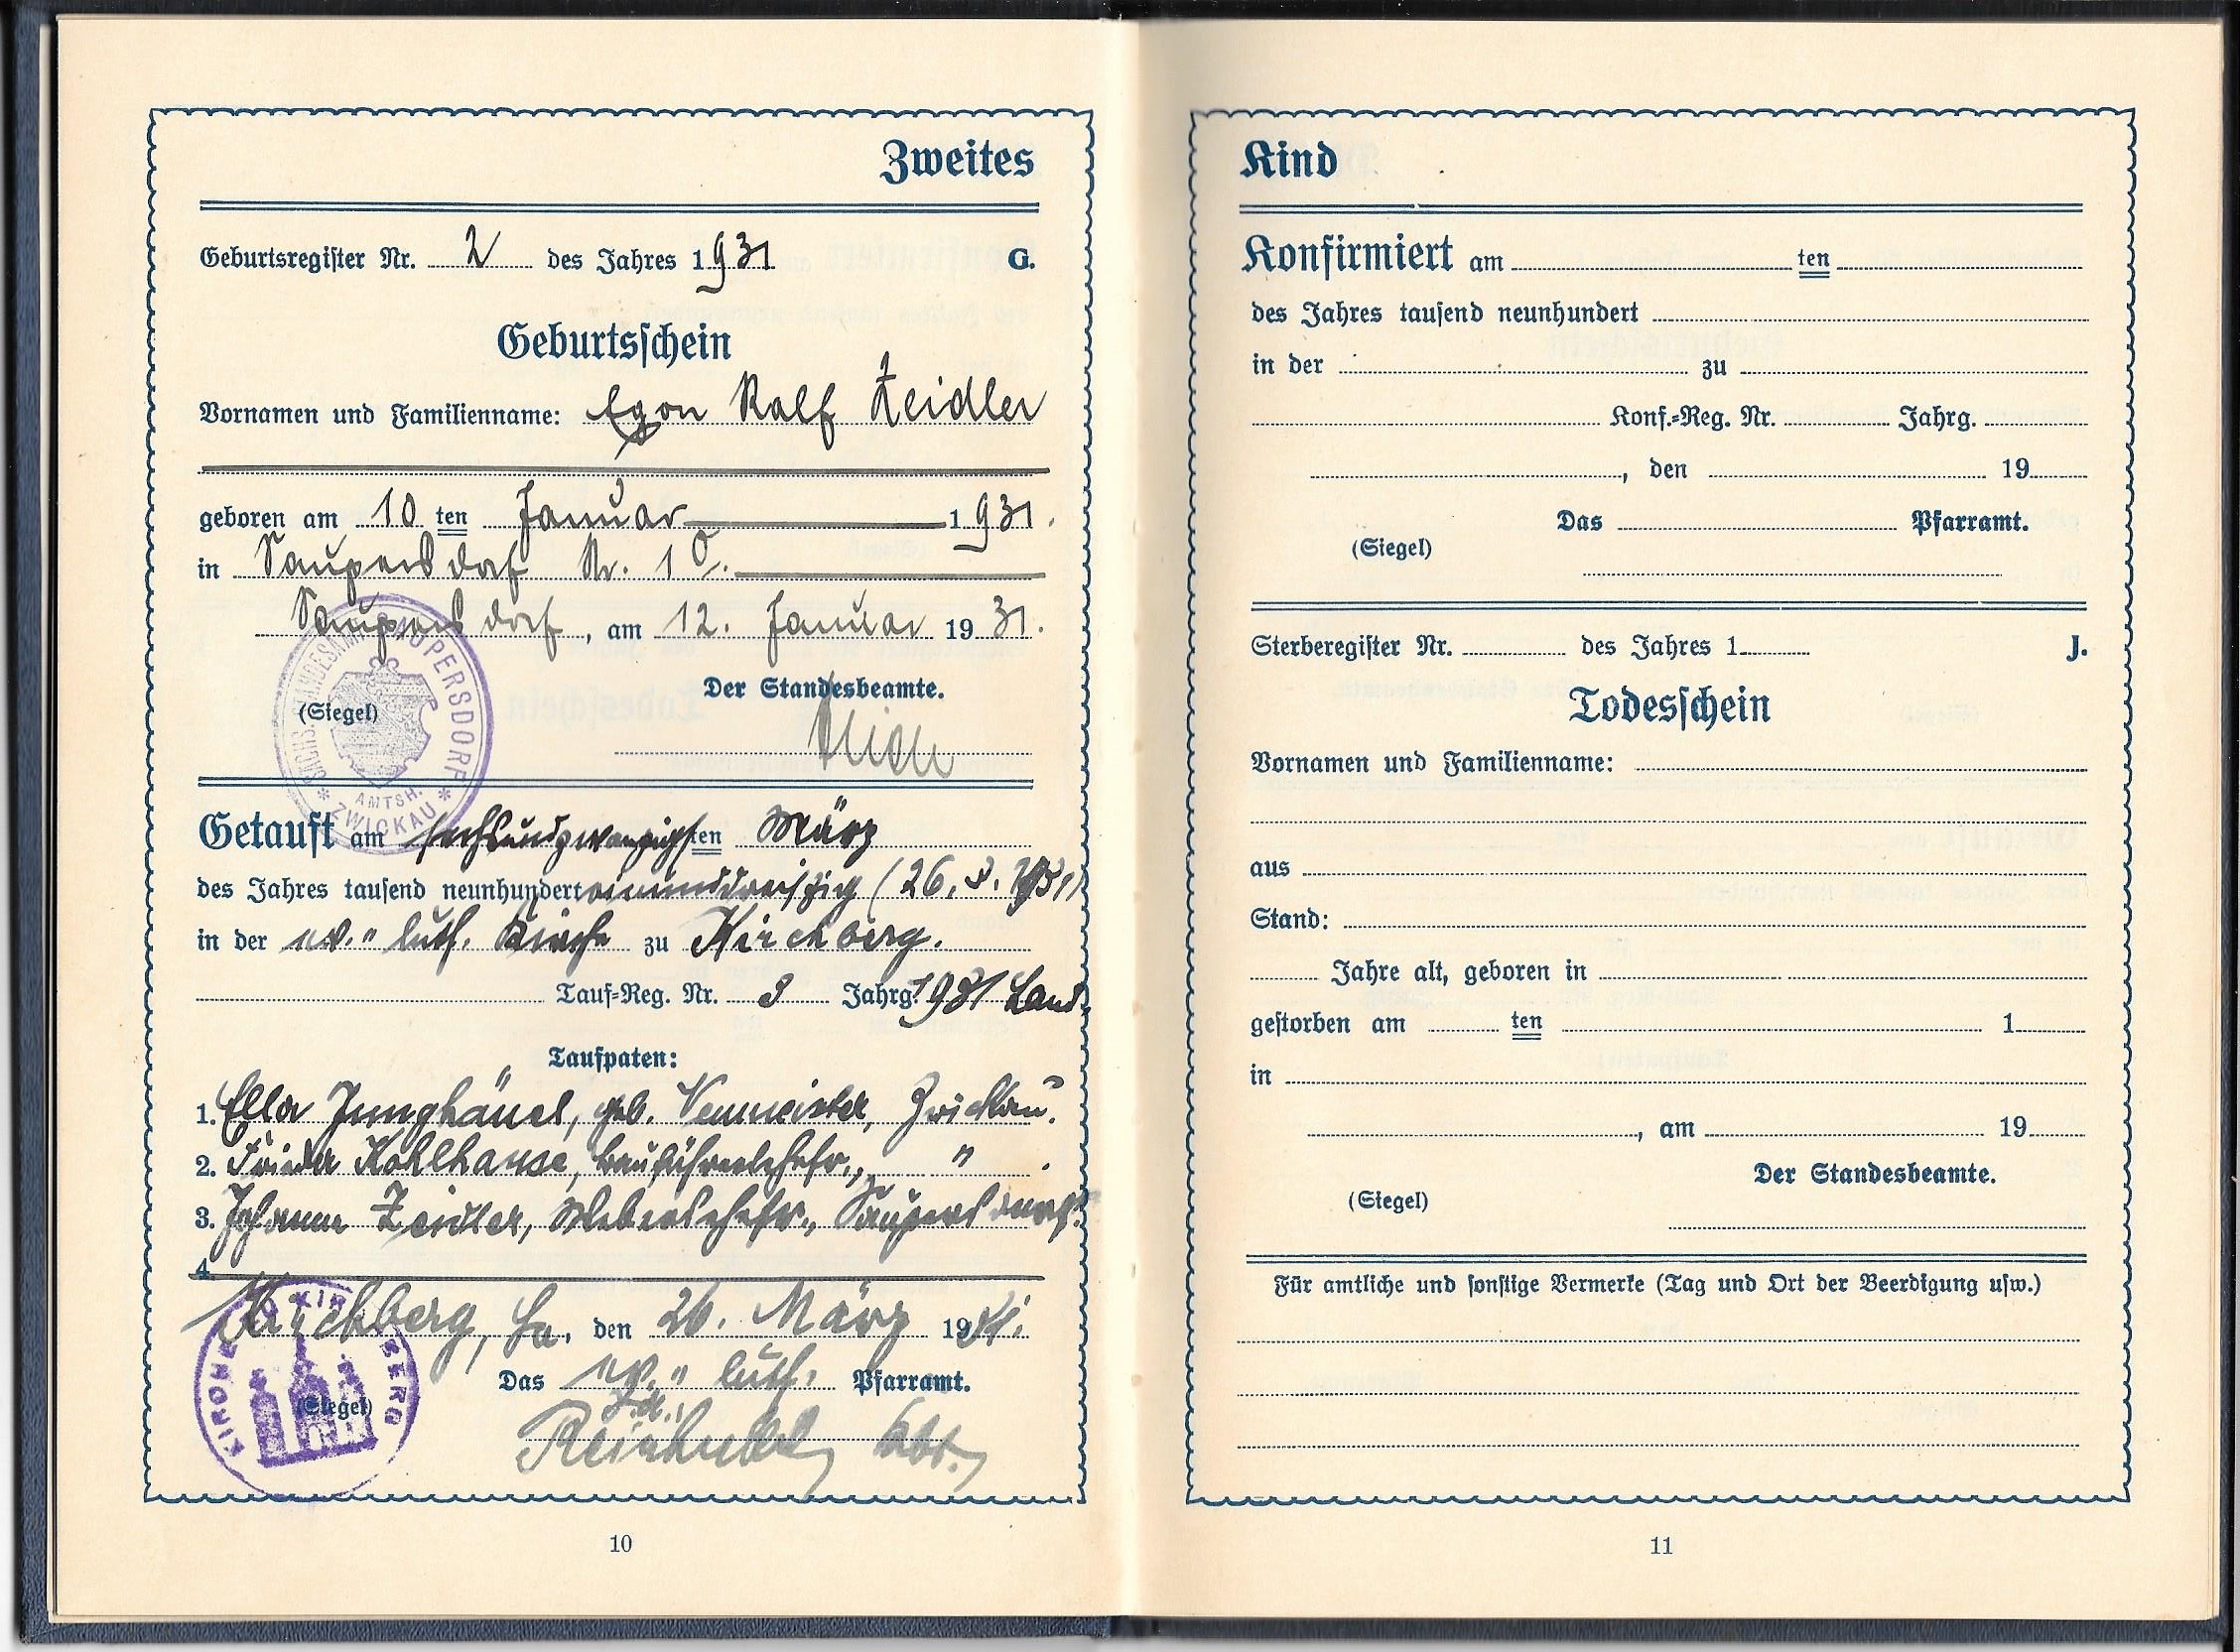 Zweites
Geburtsregister Nr. 2 des Jahres 1931 G.
Geburtsschein
Vornamen und Familienname: Egon Ralf Zeidler
geboren am 10 ten Januar 1931.
in Saupersdorf Nr. 10.
Saupersdorf, am 12. Januar 1931.
SÄCHS. STANDESAMT SAUPERSDORF
Der Standesbeamte.
(Siegel)
* AMTSH. *
ZWICKAU
Getauft am sechsundzwanzigsten März
des Jahres tausend neunhundert einunddreißig (26. 3. 1931)
in der ev.-luth. Kirche zu Kirchberg.
Tauf=Reg. Nr. 3 Jahrg. 1931 Land.
Taufpaten:
1. Ella Junghänel, geb. Neumeister, Zwickau.
2. Frieda Kohlhause, Bauführersehefr., " .
3. Johanne Zeidler, Webersehefr., Saupersdorf.
4.
Kirchberg, Sa. den 26. März 1931.
KIRCHE ZU KIRCHBERG
Das ev.-luth. Pfarramt.
(Siegel)
10
Kind
Konfirmiert am ten
des Jahres tausend neunhundert
in der zu
Konf.=Reg. Nr. Jahrg.
, den 19
Das Pfarramt.
(Siegel)
Sterberegister Nr. des Jahres 1 J.
Todesschein
Vornamen und Familienname:
aus
Stand:
Jahre alt, geboren in
gestorben am ten 1
in
, am 19
Der Standesbeamte.
(Siegel)
Für amtliche und sonstige Vermerke (Tag und Ort der Beerdigung usw.)
11